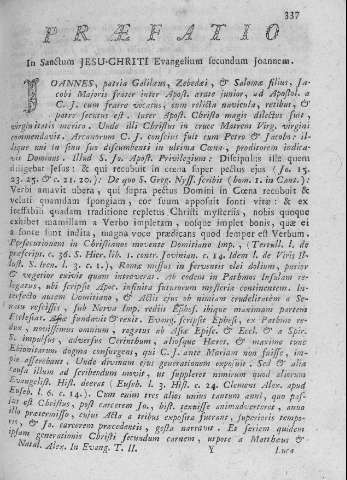 337
PRÆFATIO
In Sanctum JESU-CHRITI Evangelium secundum Joannem.
IOANNES, patria Galilæus, Zebedæi, & Salomæ filius, Ja-
cobi Majoris frater inter Apost. ætate junior, ad Apostol. a
C. J. cum fratre vocatus, eum relicta navicula, retibus, &
patre secutus est. Inter Apost. Christo magis dilectus fuit,
virginitatis merito. Unde illi Christus in cruce Matrem Virg. virgini
commendavit. Arcanorum C. J. conscius fuit cum Petro & Jacobo: il-
lique uni in sinu suo discumbenti in ultima Cœna, proditorem indica-
vit Dominus. Illud S. Jo. Apost. Privilegium: Discipulus ille quem
diligebat Jesus: & qui recubuit in cœna super pectus ejus (Jo. 13.
23. 25. & c. 21. 20.): De quo S. Greg. Nyss. scribit (hom. 1. in Cant.):
Verbi amavit ubera, qui supra pectus Domini in Cœna recubuit &
veluti quamdam spongiam, cor suum apposuit fonti vitæ: & ex
ineffabili quadam traditione repletus Christi mysteriis, nobis quoque
exhibet mamillam a Verbo impletam, nosque implet bonis, quæ ei
a fonte sunt indita, magna voce prædicans quod semper est Verbum.
Persecutionem in Christianos movente Domitiano Imp., (Tertull. l. de
præscript. c. 36. S. Hier. lib. 1. contr. Jovinian. c. 14. Idem l. de Viris Il-
lust. S. Iren. l. 3. c. 1.), Romæ missus in ferventis olei dolium, purior
& vegetior exivit quam intraverat. Ab eodem in Pathmos Insulam re-
legatus, ubi scripsit Apoc. infinita futurorum mysteria continentem. In-
terfecto autem Domitiano, & Actis ejus ob nimiam crudelitatem a Se-
natu rescissis, sub Nerva Imp. rediit Ephes. ibique maximam partem
Ecclesiar. Asiæ fundavit & rexit. Evang. scripsit Ephesi, ex Parthine re-
dux, novissimus omnium, rogatus ab Asiæ Episc. & Eccl. & a Spir.
S. impulsus, adversus Cerinthum, aliosque Hæres. & maxime tunc
Ebionitarum dogma consurgens, qui C. J. ante Mariam non fuisse, im-
pie asserebant. Unde divinam ejus generationem exposuit. Sed & alia
causa illum ad scribendum movit, ut suppleret nimirum quod aliorum
Evangelist. Hist. deerat (Euseb. l. 3. Hist. c. 24. Clemens Alex. apud
Euseb. l. 6. c. 14.). Cum enim tres alios unius tantum anni, quo pas-
sus est Christus, post carcerem Jo., hist. texuisse animadverteret, anno
illo prætermisso, cujus Acta a tribus exposita fuerant, superioris tempo-
ris, & Jo. carcerem præcedentis, gesta narrat. Et seriem quidem
ipsam generationis Christi secundum carnem, utpote a Matthæo &
Natal. Alex. In Evang. T. II. Y Luca